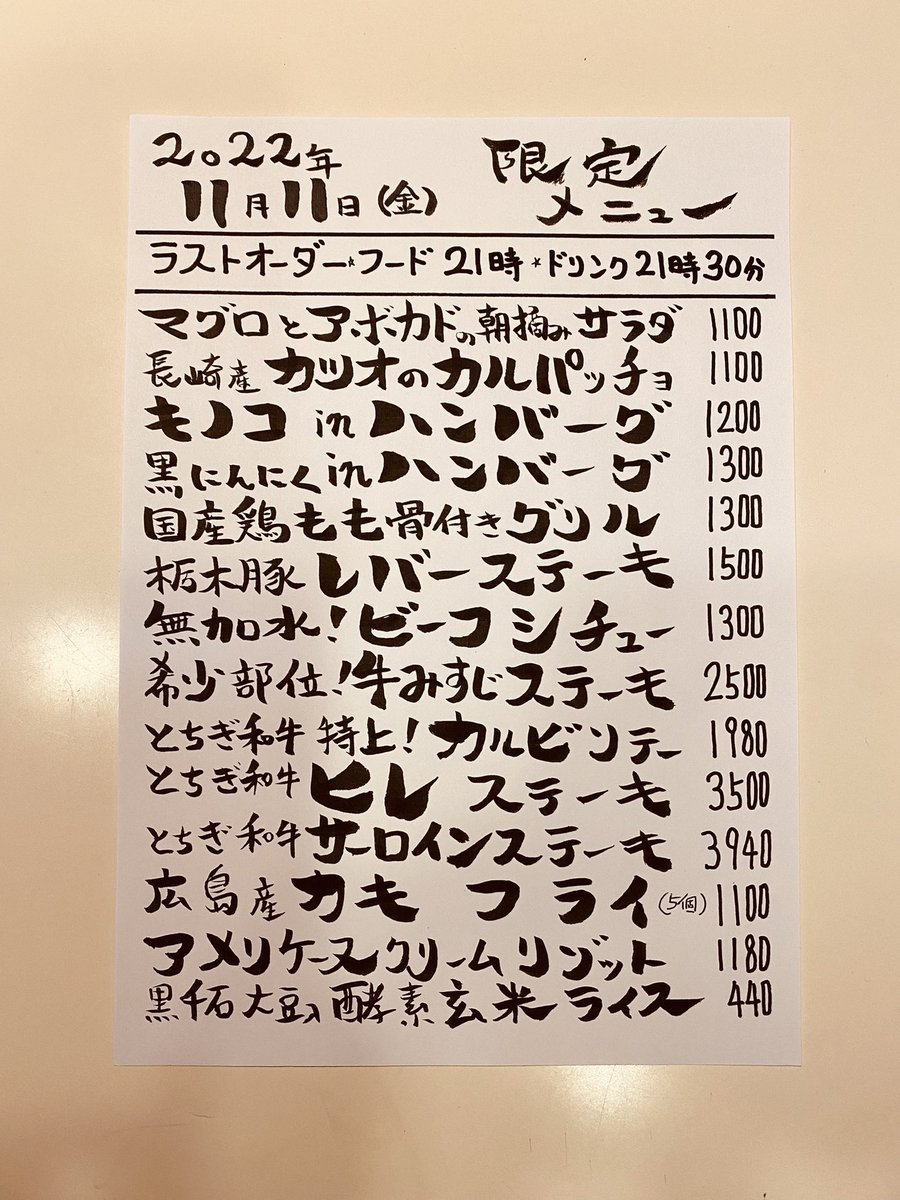 2022年 限定
11月11日(金) メニュー
ラストオーダー*フード 21時 *ドリンク21時30分
マグロとアボカドの朝摘みサラダ 1100
長崎産 カツオのカルパッチョ 1100
キノコ in ハンバーグ 1200
黒にんにく in ハンバーグ 1300
国産鶏もも骨付きグリル 1300
栃木豚 レバーステーキ 1500
無加水!ビーフシチュー 1300
希少部位!牛みすじステーキ 2500
とちぎ和牛 特上!カルビソテー 1980
とちぎ和牛 ヒレ ステーキ 3500
とちぎ和牛 サーロインステーキ 3940
広島産 カキ フライ (5個) 1100
アメリケーヌクリームリゾット 1180
黒千石大豆入酵素玄米ライス 440